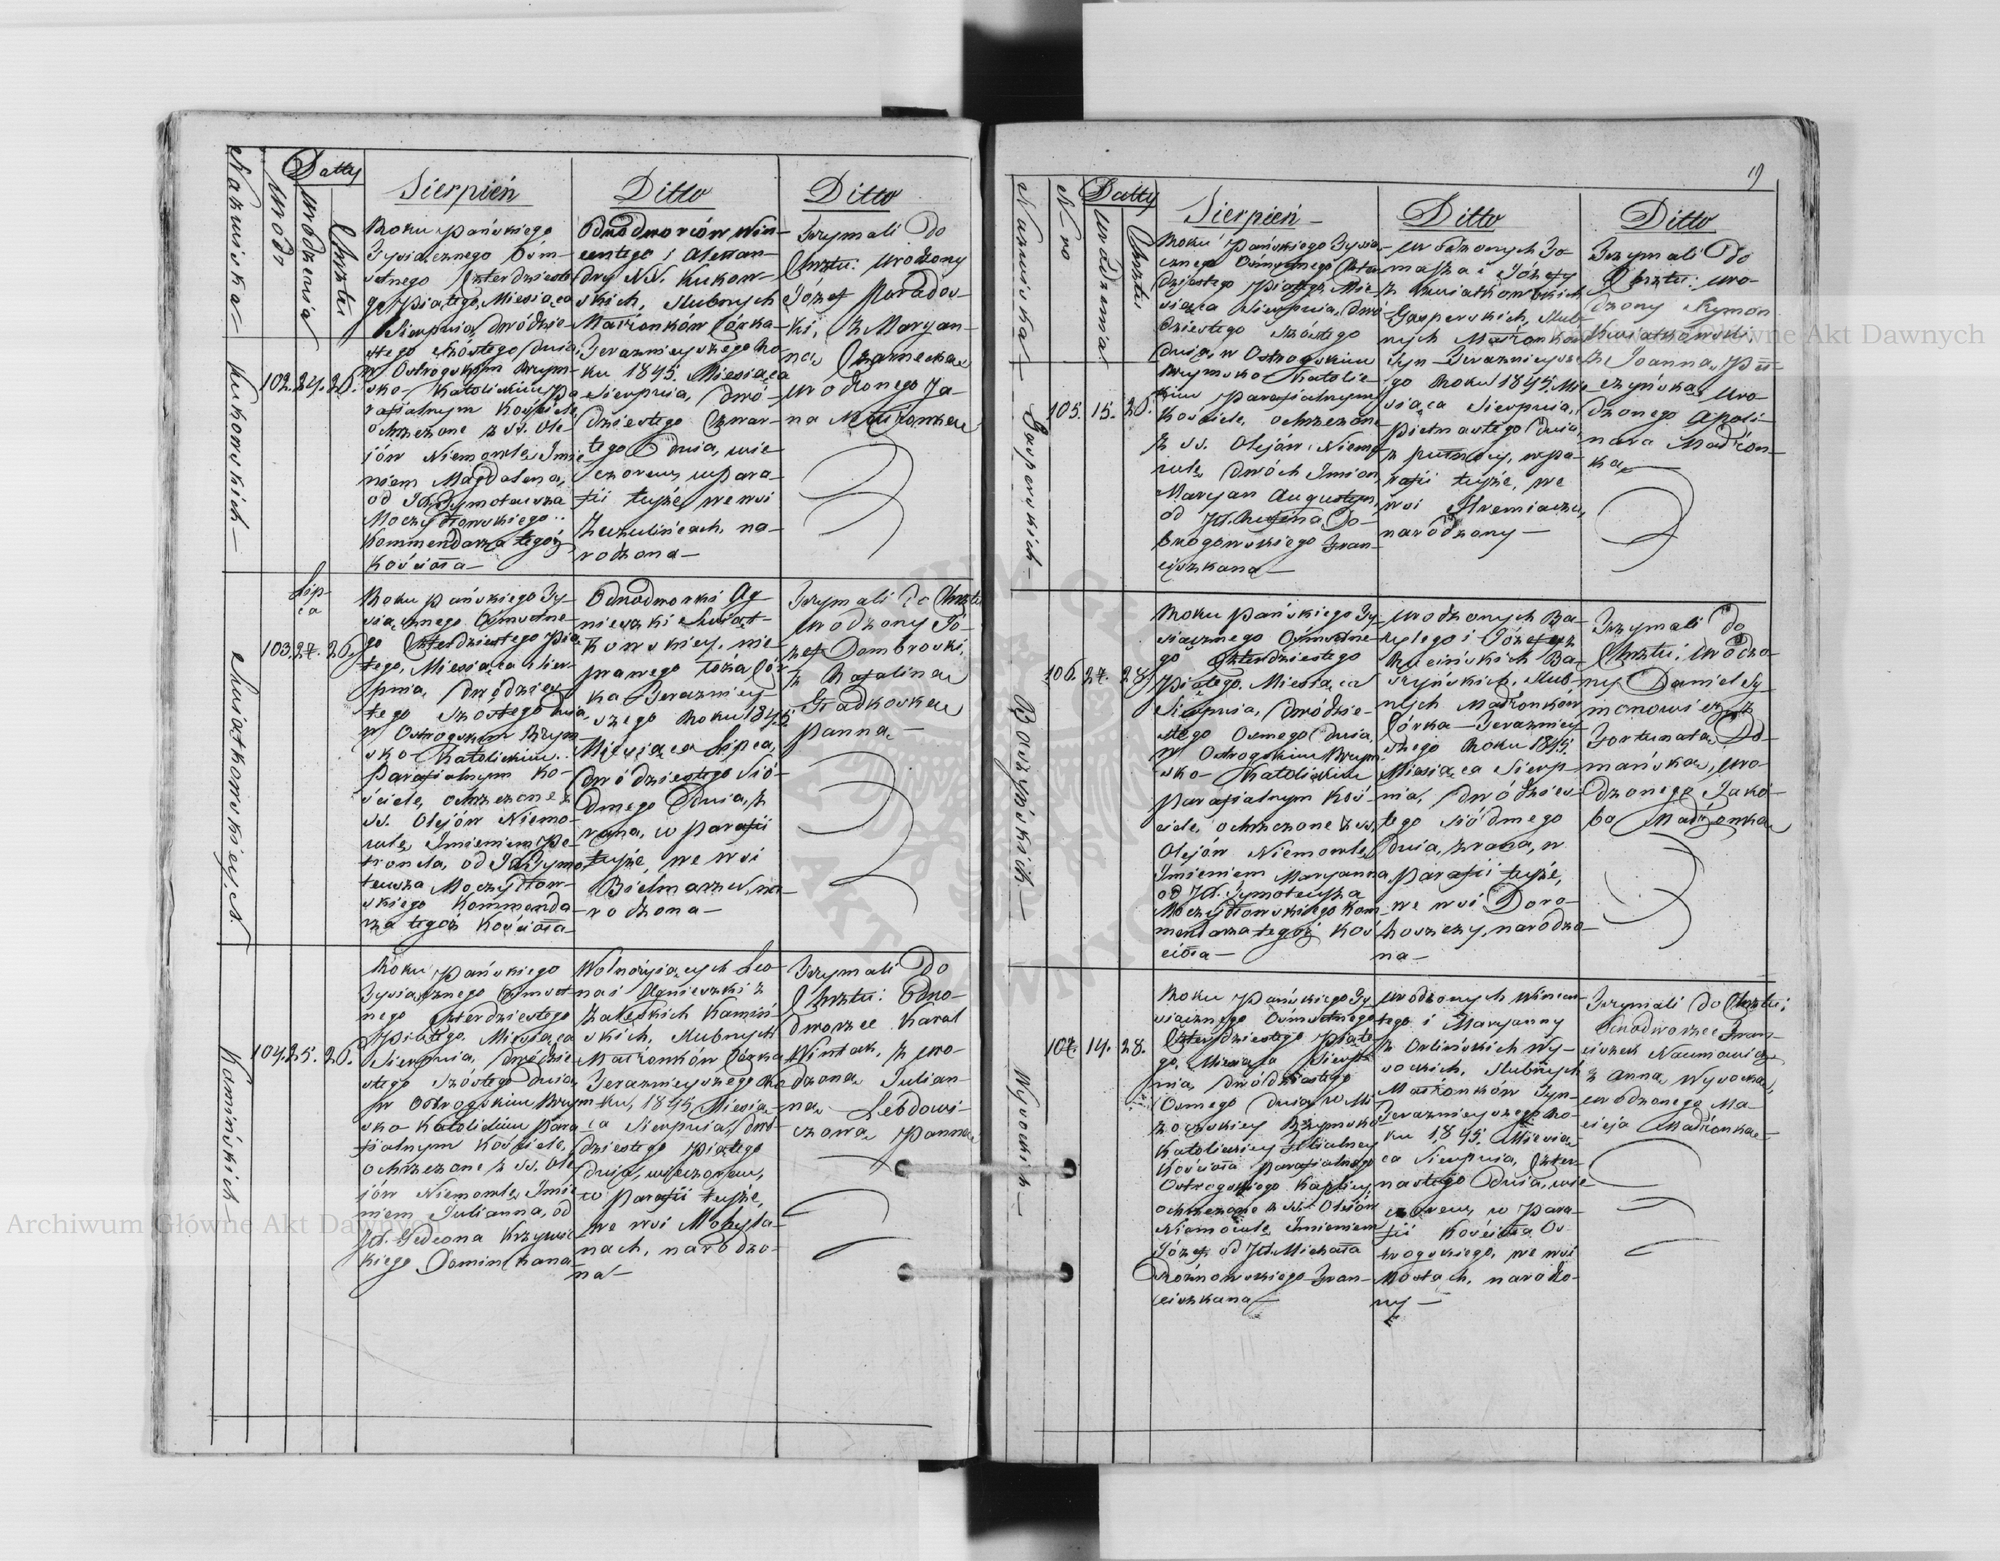 Nazwiska
Urodz
Datty
urodzenia
Chrztu
Sierpień
Ditto
Ditto
Kukowskich
102. 24. 26.
Roku Pańskiego
Tysiącznego Ośm-
setnego Czterdzieste
go Piątego, Miesiąca
Sierpnia, dwódzie-
stego szóstego Dnia,
w Ostrogskim Rzym-
sko Katolickim Pa
rafialnym Kościele
ochrzczone z SS. Ole-
jów Niemowle Imie
niem Magdalena,
od Tymoteusza
Moczydłowskiego
Kommendarza tegoż
Kościoła
Odnodworców Win-
centego i Alexan-
dry NN. Kukow-
skich, Slubnych
Małżonków Córka
Terazniejszego Ro-
ku 1845. Miesiąca
Sierpnia, Dwó-
dziestego Czwar-
tego Dnia, wie
czorem, w para-
fii tejże, we wsi
narodzona
Trzymali Do
Chrztu: Urodzony
Józef
ki, z Maryan-
na Czarnecka
Urodzonego Ja-
na Małżonka
Swiatkowskiej N.
103. Lipca 27. 26.
Roku Pańskiego Ty-
siącznego Ośmsetne-
go Czterdziestego Pią
tego, Miesiąca Sier-
pnia, Dwódzies-
tego Szostego Dnia
w Ostrogskim Rzym
sko Katolickim
Parafialnym Ko-
ściele, ochrzczone z
SS. Olejów Niemo-
wle Imieniem Pe-
tronela, od Tymo
teusza Moczydłow-
skiego Kommenda
rza tegoż Kościoła
Odnodworki Ag-
nieszki Swiąt-
kowskiej, nie
prawego łoża Cór
ka Terazniej-
szego Roku 1845
Miesiąca Lipca,
Dwódziestego Sió-
dmego Dnia, z
rana, w Parafii
tejże, we wsi
Bielmarzu, na-
rodzona
Trzymali do Chrztu
Urodzony Jó-
zef Dombrowski,
z Katalina
Gradkowska
Panna
Kamińskich
104. 25. 26.
Roku Pańskiego
Tysiącznego Ośmset-
nego Czterdziestego
Piątego, Miesiąca
Sierpnia, dwódzie
stego Szóstego Dnia,
w Ostrogskim Rzym
sko Katolickim Para
fialnym Kościele,
ochrzczone z SS. Ole
jów Niemowle Imie
niem Julianna, od
Gedeona Krzywic
kiego Dominikana
Wolnożyjących Leo-
na i Agnieszki z
Zaleskich Kamiń-
skich, Slubnych
Małżonków Córka
Terazniejszego Ro
ku, 1845 Miesią-
ca Sierpnia, dwó-
dziestego Piątego
Dnia, wieczorem,
w Parafii tejże,
we wsi Mohyla-
nach, narodzo-
na
Trzymali Do
Chrztu: Odno-
dworzec Karol
z uro-
dzona Julian-
na
Panna
Nazwiska
N-ro
Datty
urodzenia
Chrztu
Sierpień
Ditto
Ditto
19
Gasperskich
105. 15. 26.
Roku Pańskiego Tysią-
cznego Ośmsetnego Czter
dziestego Piątego Mie-
siąca Sierpnia, dwó
dziestego Szóstego
Dnia, w Ostrogskim
Rzymsko Katolic-
kim Parafialnym
Kościele, ochrzczone
z SS. Olejów Niemo-
wle Dwóch Imion,
Maryan Augustyn,
od Rufina Do-
browowskiego Fran-
ciszkana
Urodzonych To-
masza i Józefy
z Kwiatkowskich
Gasperskich, Slub-
nych Małżonków
Syn Terazniejsze-
go Roku 1845 Mie
siąca Sierpnia,
Pietnastego Dnia,
z pułnocy, w pa-
rafii tejże, we
wsi
narodzony
Trzymali Do
Chrztu: Uro-
dzony Szymon
Kwiatkowski,
z Joanna
Uro-
dzonego Apoli-
nara Małżon-
ka
Baszyńskich
106. 27. 28.
Roku Pańskiego Ty-
siącznego Ośmsetne-
go Czterdziestego
Piątego. Miesiąca
Sierpnia, Dwódzie-
stego Osmego Dnia,
w Ostrogskim Rzym
sko Katolickim
Parafialnym Koś-
ciele, ochrzczone z SS.
Olejów Niemowle
Imieniem Maryanna,
od Tymoteusza
Moczydłowskiego Kom
mendarza tegoż Koś
cioła
Urodzonych Ba-
zylego i Józefy z
Rucińskich Ba-
szyńskich, Slub-
nych Małżonków
Córka Terazniej-
szego Roku 1845.
Miesiąca Sierp-
nia, dwódzies-
tego siódmego
Dnia, z rana, w
Parafii tejże,
we wsi Doro-
hoszczy, narodzo-
na
Trzymali Do
Chrztu: Urodzo-
ny Daniel Sy-
manowicz, z
Fortunata
Uro-
dzonego Jakó-
ba Małżonka
Wysockich
107. 14. 28.
Roku Pańskiego Ty-
siącznego Ośmsetnego
Czterdziestego Piąte-
go, Miesiąca Sierp-
nia, Dwódziestego
Osmego Dnia, w
Rzymsko
Katolickiej Filialnej
Kościoła Parafialnego
Ostrogskiego Kaplicy
ochrzczone z SS. Olejów
Niemowle, Imieniem
Józef, od Michała
Fran-
ciszkana
Urodzonych Wincen-
tego i Maryanny
z Orlińskich Wy-
sockich, Slubnych
Małżonków Syn
Terazniejszego Ro-
ku 1845. Miesią-
ca Sierpnia, Czter-
nastego Dnia, wie
czorem, w Para-
fii Kościoła Os-
trogskiego, we wsi
Mostach, narodzo-
ny
Trzymali do Chrztu:
Odnodworzec Fran-
ciszek Naumowicz
z Anna Wysocka,
urodzonego Ma-
cieja Małżonka
Archiwum Główne Akt Dawnych
Archiwum Główne Akt Dawnych